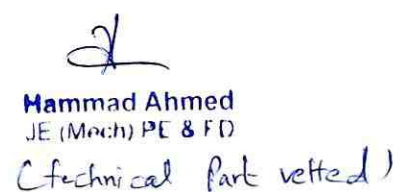 Hammad Ahmed
JE (Mech) PE & FD
(technical Part vetted)